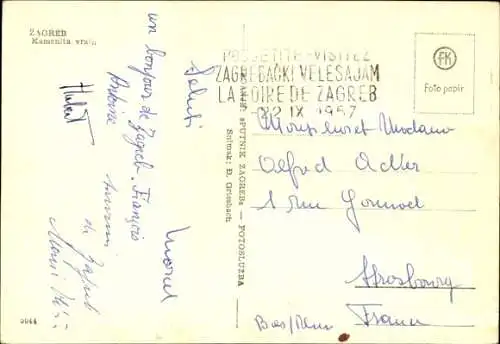 ZAGREB
Kamenita vrata
POSJETITE - VISITEZ
ZAGREBAČKI VELESAJAM
LA FOIRE DE ZAGREB
IX 1957
FK
Foto papir
un bonjour de Zagreb. François
Antoine
Hubert
Saluti
Marcel
de Zagreb
"PUTNIK ZAGREB" — FOTOSLUŽBA
Snimak: Đ. Griesbach
Monsieur et Madame
Alfred Adler
1 rue Gounod
Strasbourg
Bas/Rhin
France